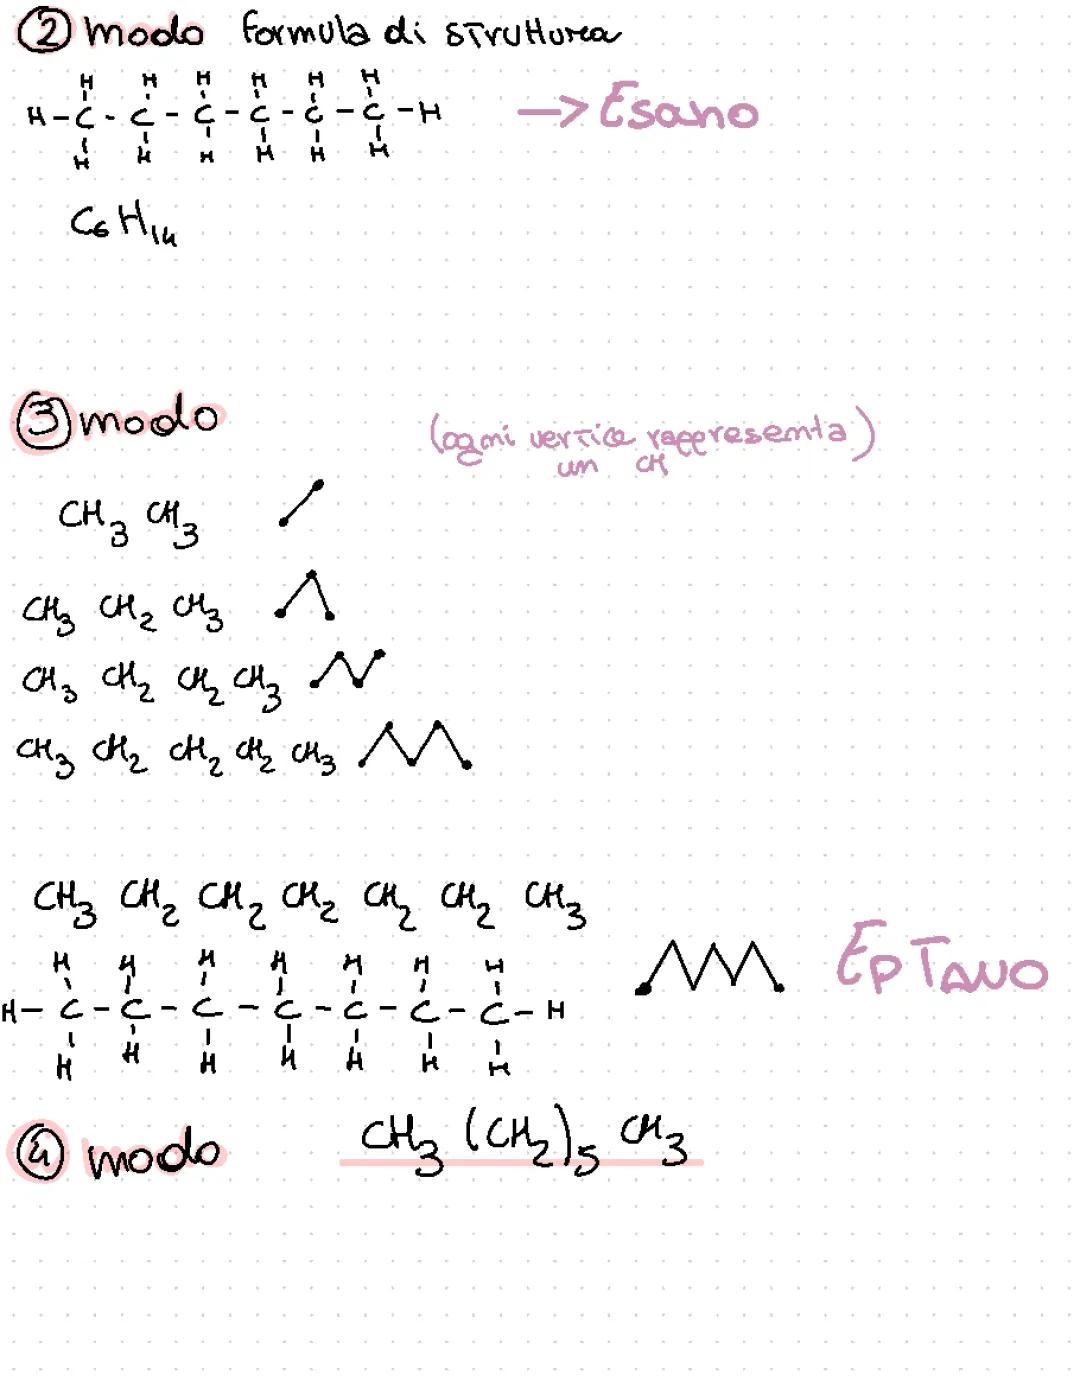 ② modo formula di struttura
H H H H H H
H - C - C - C - C - C - C - H -> Esano
H H H H H H
C6 H14
③ modo
(ogni vertice rappresenta)
un CH
CH3 CH3
CH3 CH2 CH3
CH3 CH2 CH2 CH3
CH3 CH2 CH2 CH2 CH3
CH3 CH2 CH2 CH2 CH2 CH2 CH3
H H H H H H H
H - C - C - C - C - C - C - C - H EPTANO
H H H H H H H
④ modo CH3 (CH2)5 CH3